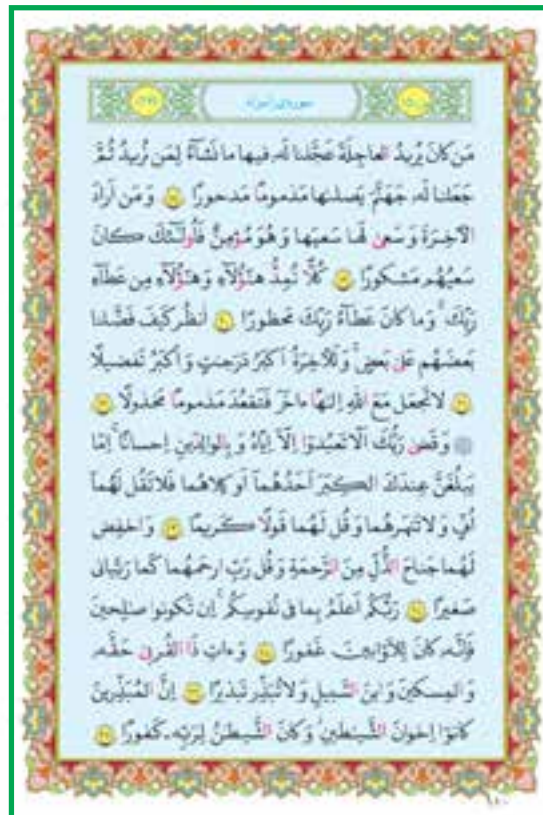 سوره‌ی إسراء
مَن كانَ يُريدُ العاجِلَةَ عَجَّلنا لَه فيها ما نَشاءُ لِمَن نُريدُ ثُمَّ
جَعَلنا لَه جَهَنَّمَ يَصلىٰها مَذمومًا مَدحورًا ١٨ وَ مَن اَرادَ
الآخِرَةَ وَ سَعىٰ لَها سَعيَها وَ هُوَ مُؤمِنٌ فَاُولٰئِكَ كانَ
سَعيُهُم مَشكورًا ١٩ كُلًّا نُمِدُّ هٰؤُلاءِ وَ هٰؤُلاءِ مِن عَطاءِ
رَبِّكَ وَ ما كانَ عَطاءُ رَبِّكَ مَحظورًا ٢٠ اُنظُر كَيفَ فَضَّلنا
بَعضَهُم عَلىٰ بَعضٍ وَ لَلآخِرَةُ اَكبَرُ دَرَجٰتٍ وَ اَكبَرُ تَفضيلًا
٢١ لا تَجعَل مَعَ اللهِ اِلٰهًا ءاخَرَ فَتَقعُدَ مَذمومًا مَخذولًا ٢٢
وَ قَضىٰ رَبُّكَ اَلّا تَعبُدوا اِلّا اِيّاهُ وَ بِالوالِدَينِ اِحسانًا اِمّا
يَبلُغَنَّ عِندَكَ الكِبَرَ اَحَدُهُما اَو كِلاهُما فَلا تَقُل لَهُما
اُفٍّ وَ لا تَنهَرهُما وَ قُل لَهُما قَولًا كَريمًا ٢٣ وَ اخفِض
لَهُما جَناحَ الذُّلِّ مِنَ الرَّحمَةِ وَ قُل رَبِّ ارحَمهُما كَما رَبَّياني
صَغيرًا ٢٤ رَبُّكُم اَعلَمُ بِما في نُفوسِكُم اِن تَكونوا صٰلِحينَ
فَاِنَّه كانَ لِلاَوّابينَ غَفورًا ٢٥ وَ ءاتِ ذَا القُربىٰ حَقَّه
وَ المِسكينَ وَ ابنَ السَّبيلِ وَ لا تُبَذِّر تَبذيرًا ٢٦ اِنَّ المُبَذِّرينَ
كانوا اِخوانَ الشَّيٰطينِ وَ كانَ الشَّيطٰنُ لِرَبِّه كَفورًا ٢٧